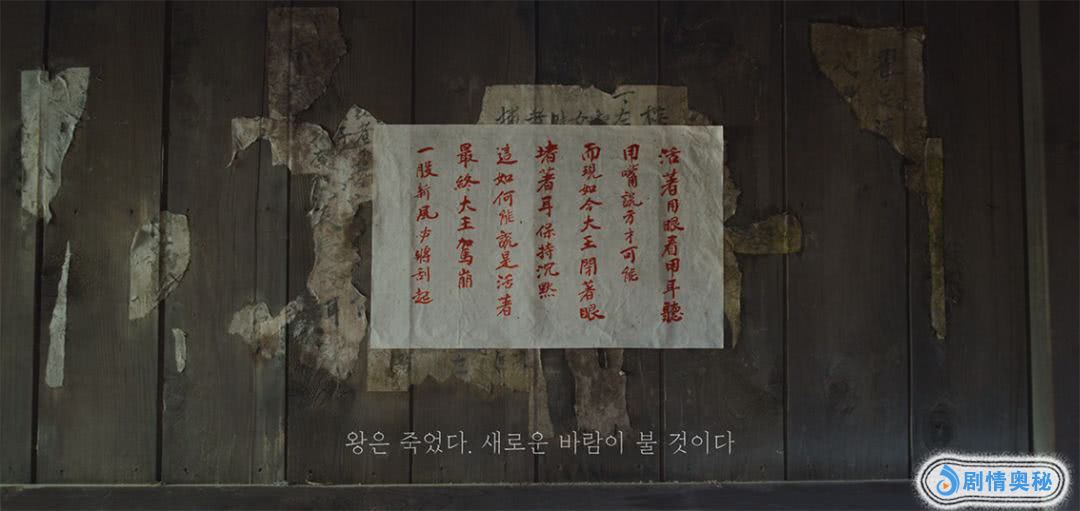 活著用眼看用耳聽
用嘴說方才可能
而現如今大王閉著眼
堵著耳保持沉默
這如何能說是活著
最終大王駕崩
一股新風必將刮起
왕은 죽었다. 새로운 바람이 불 것이다
剧情奥秘